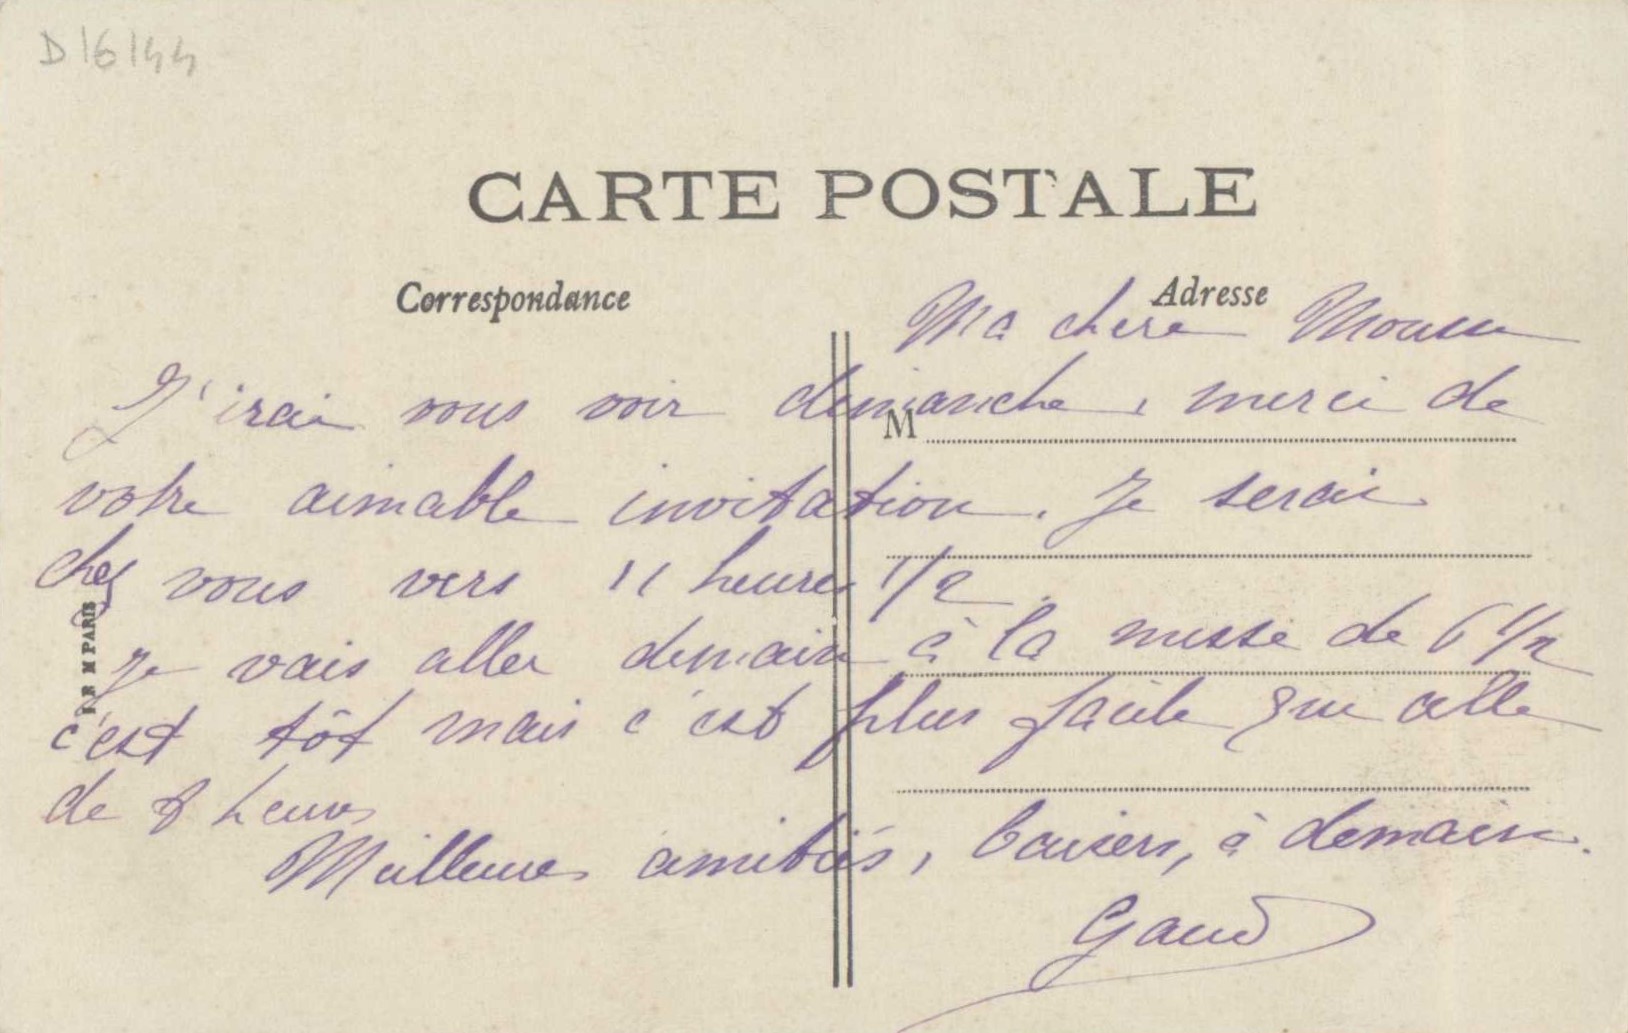 D16144
CARTE POSTALE
Correspondance
Adresse
Ma chère Mousse
J'irai vous voir dimanche, merci de
M
votre aimable invitation. Je serai
chez vous vers 11 heures 1/2.
Je vais aller demain à la messe de 6 1/2
c'est tôt mais c'est plus facile que celle
de 8 heures
Meilleures amitiés, baisers, à demain.
Gaud
M PARIS